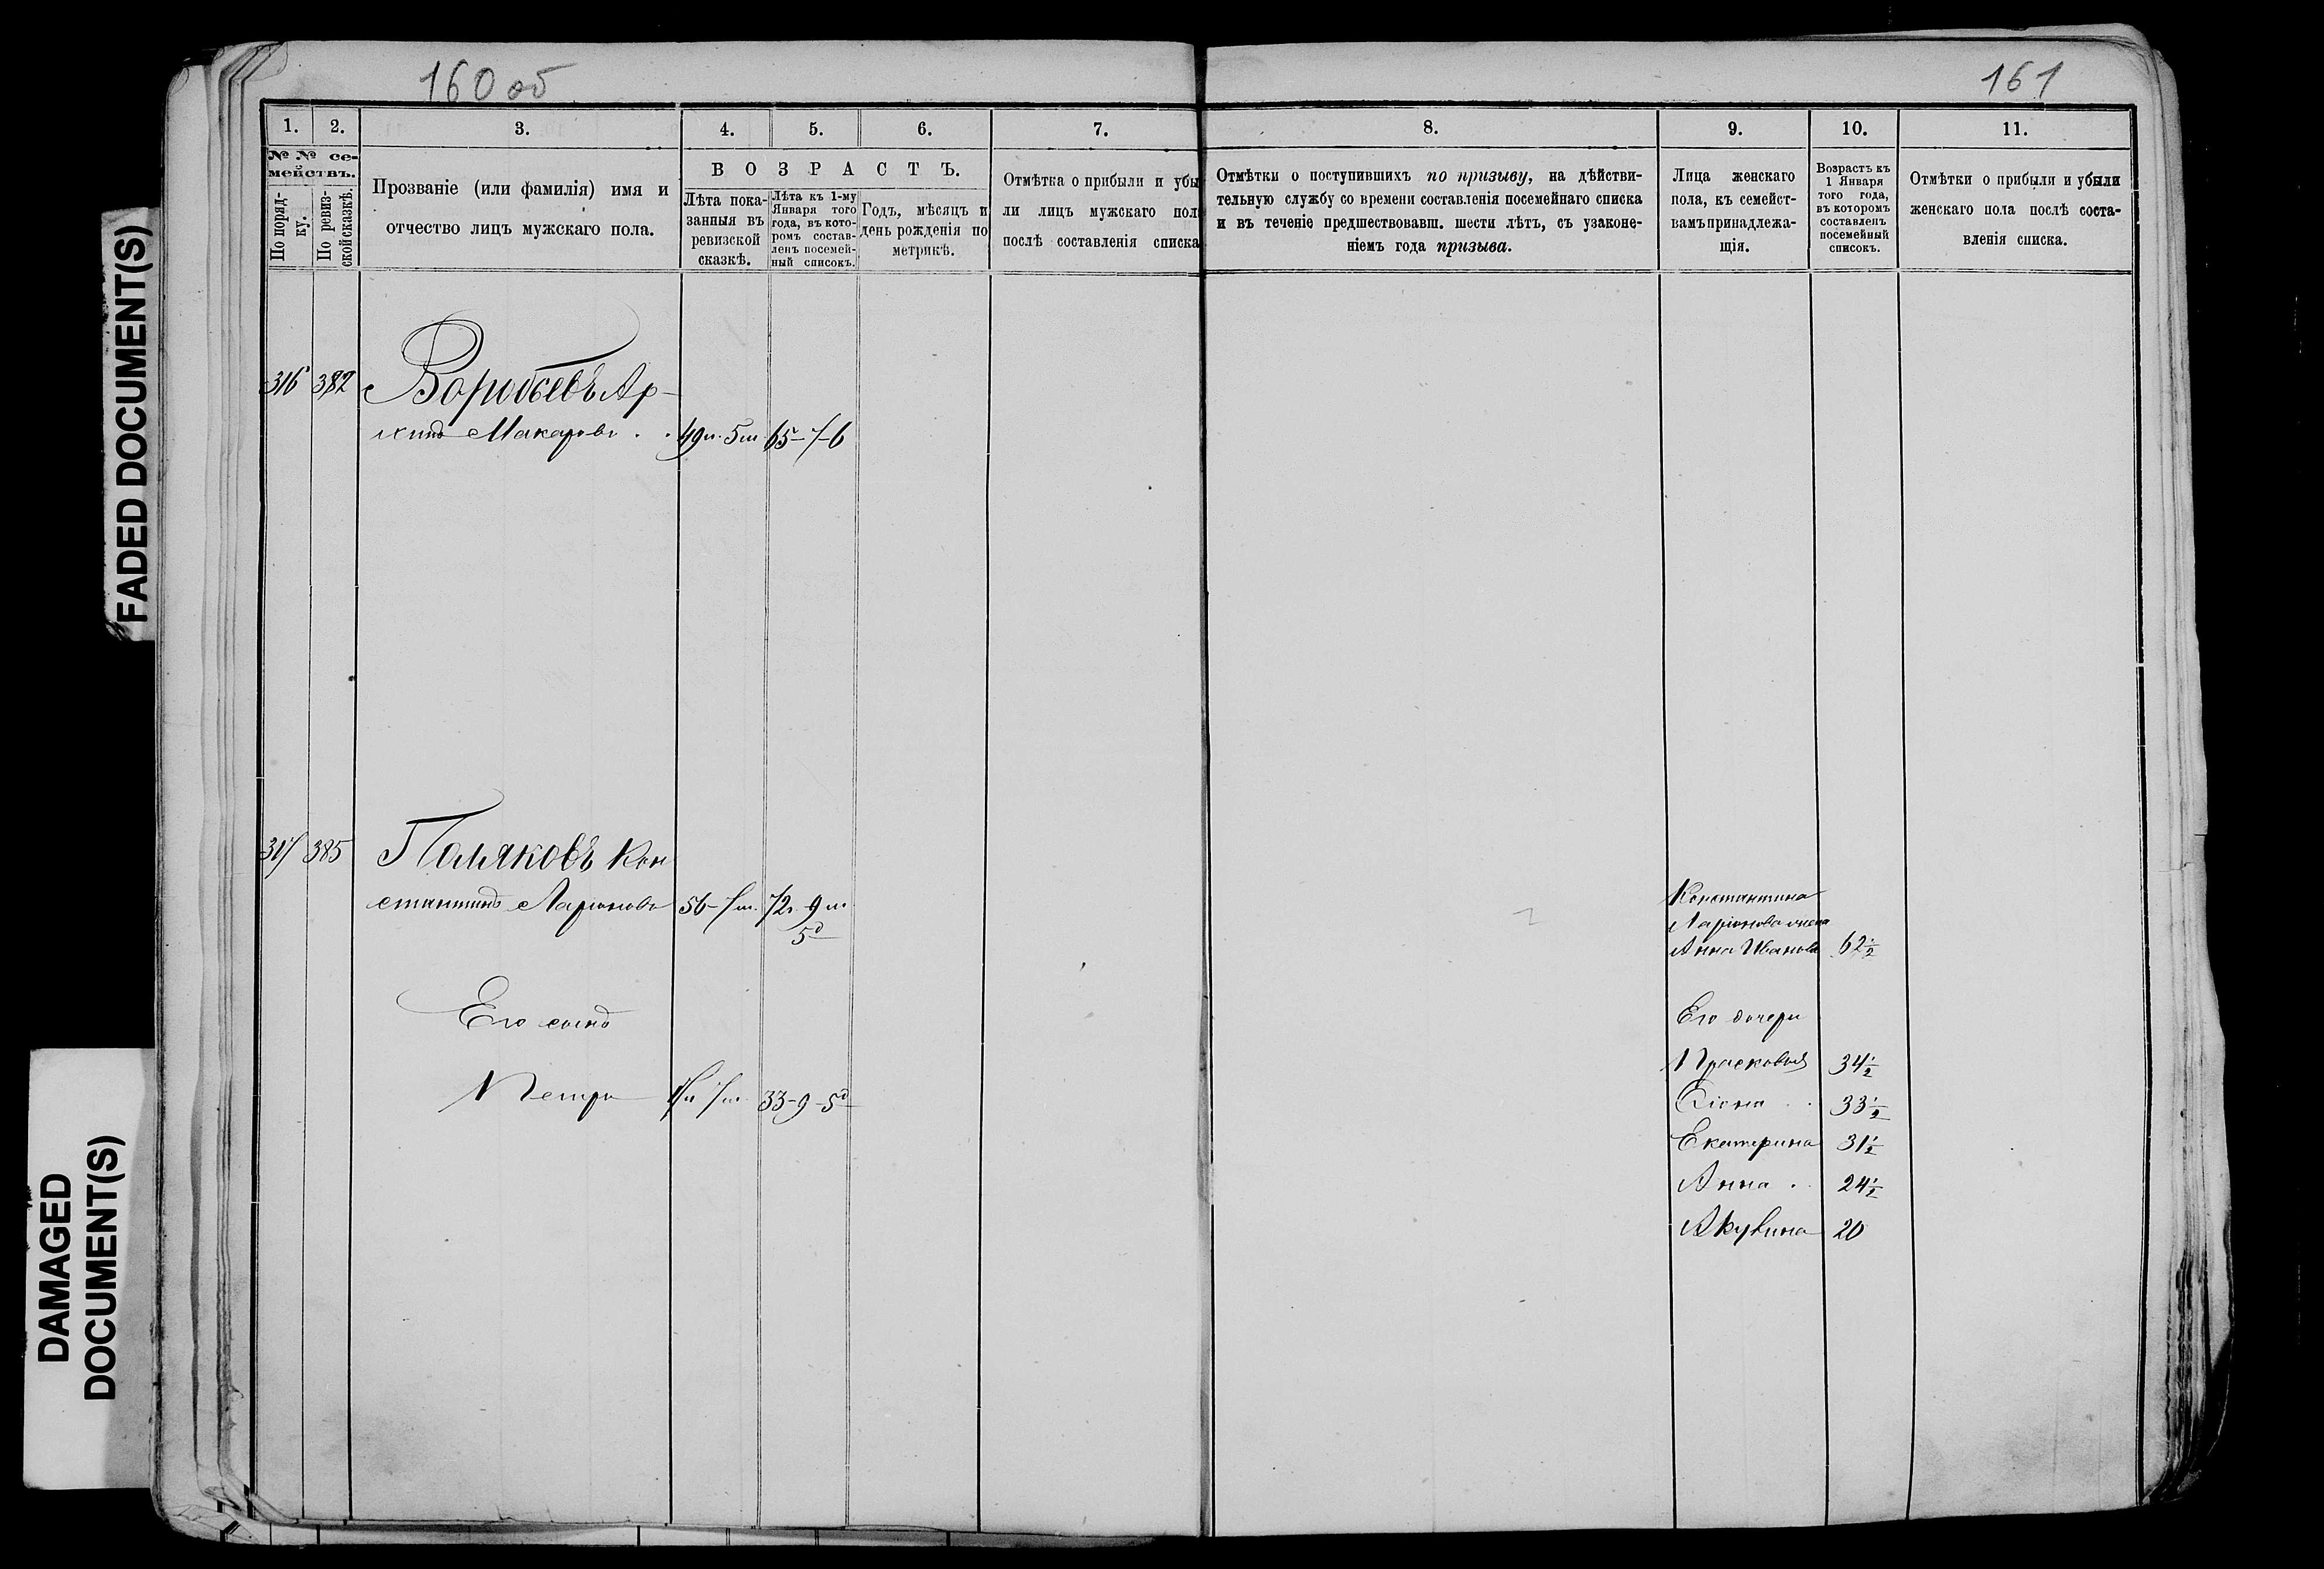 160 об
161
1. 2. 3. 4. 5. 6. 7. 8. 9. 10. 11.
№ № се-
мействъ.
По поряд-
ку.
По ревиз-
ской сказкѣ.
Прозваніе (или фамилія) имя и
отчество лицъ мужскаго пола.
ВОЗРАСТЪ.
Лѣта пока-
занныя въ
ревизской
сказкѣ.
Лѣта къ 1-му
Января того
года, въ кото-
ромъ состав-
ленъ посемей-
ный списокъ.
Годъ, мѣсяцъ и
день рожденія по
метрикѣ.
Отмѣтка о прибыли и убы
ли лицъ мужскаго пол
послѣ составленія списка
Отмѣтки о поступившихъ по призыву, на дѣйстви-
тельную службу со времени составленія посемейнаго списка
и въ теченіе предшествовавш. шести лѣтъ, съ узаконе-
ніемъ года призыва.
Лица женскаго
пола, къ семейст-
вамъ принадлежа-
щія.
Возрастъ къ
1 Января
того года,
въ которомъ
составленъ
посемейный
списокъ.
Отмѣтки о прибыли и убыли
женскаго пола послѣ соста-
вленія списка.
316 382 Воробьевъ Ар-
хипъ Макаровъ . . 49л. 5м 65-7-6
317 385 Паляковъ Кон
стантинъ Ларіоновъ 56-7м. 72. 9м
5д
Его сынъ
Петръ 7м. 33-9-5д
Константина
Ларіонова жена
Анна Иванова 62½
Его дочери
Прасковья 34½
Елена . . 33½
Екатерина 31½
Анна . . 24½
Акулина 20
FADED DOCUMENT(S)
DAMAGED
DOCUMENT(S)